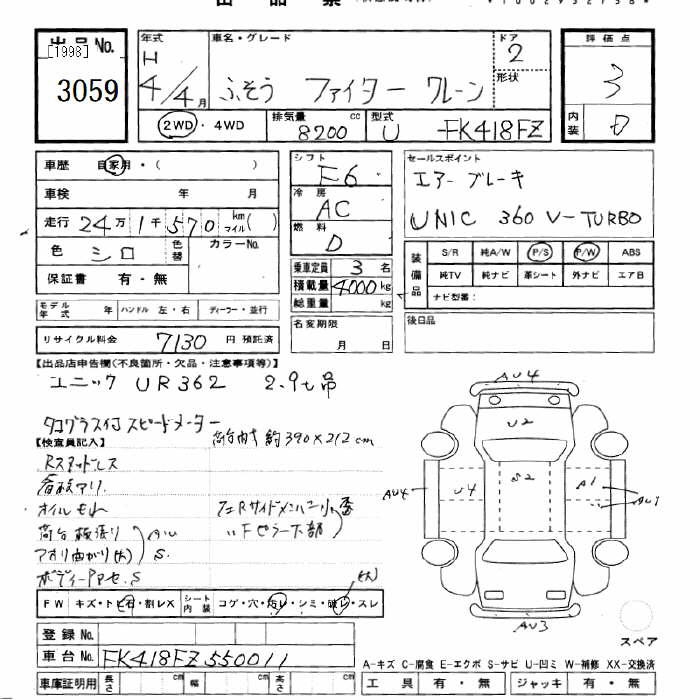 出品No.
[1998]
3059
年式
H
4/4月
車名・グレード
ふそう ファイター クレーン
ドア
2
形状
評価点
3
内装
D
2WD・4WD
排気量 8200 cc
型式 U -FK418FZ
車歴 自家用・( )
車検 年 月
走行 24万1千570 km マイル( )
色 シロ 色替 カラーNo.
保証書 有・無
シフト F6
冷房 AC
燃料 D
セールスポイント
エアーブレーキ
UNIC 360 V-TURBO
装備品
S/R 純A/W P/S P/W ABS
純TV 純ナビ 革シート 外ナビ エアB
ナビ型番:
乗車定員 3 名
積載量 4000 kg
総重量 kg
モデル年式 年 ハンドル 左・右 ディーラー・並行
リサイクル料金 7130 円 預託済
名変期限
月 日
後日品
【出品店申告欄(不良箇所・欠品・注意事項等)】
ユニック UR362 2.9t吊
タコグラフ付スピードメーター
【検査員記入】
荷台内寸 約390×212cm
Rスタッドレス
看板アリ
オイルもれ
荷台板張り
アオリ曲がり(大)
S.
ボディーP S
AU4
U2
S2
U4
A1
AU4
AU1
AU3
(大)
FW キズ・トビ石・割レX シート内装 コゲ・穴・汚レ・シミ・破レ・スレ
登録No.
車台No. FK418FZ550011
車庫証明用 長さ cm 幅 cm 高さ cm
スペア
A-キズ C-腐食 E-エクボ S-サビ U-凹ミ W-補修 XX-交換済
工具 有・無 ジャッキ 有・無